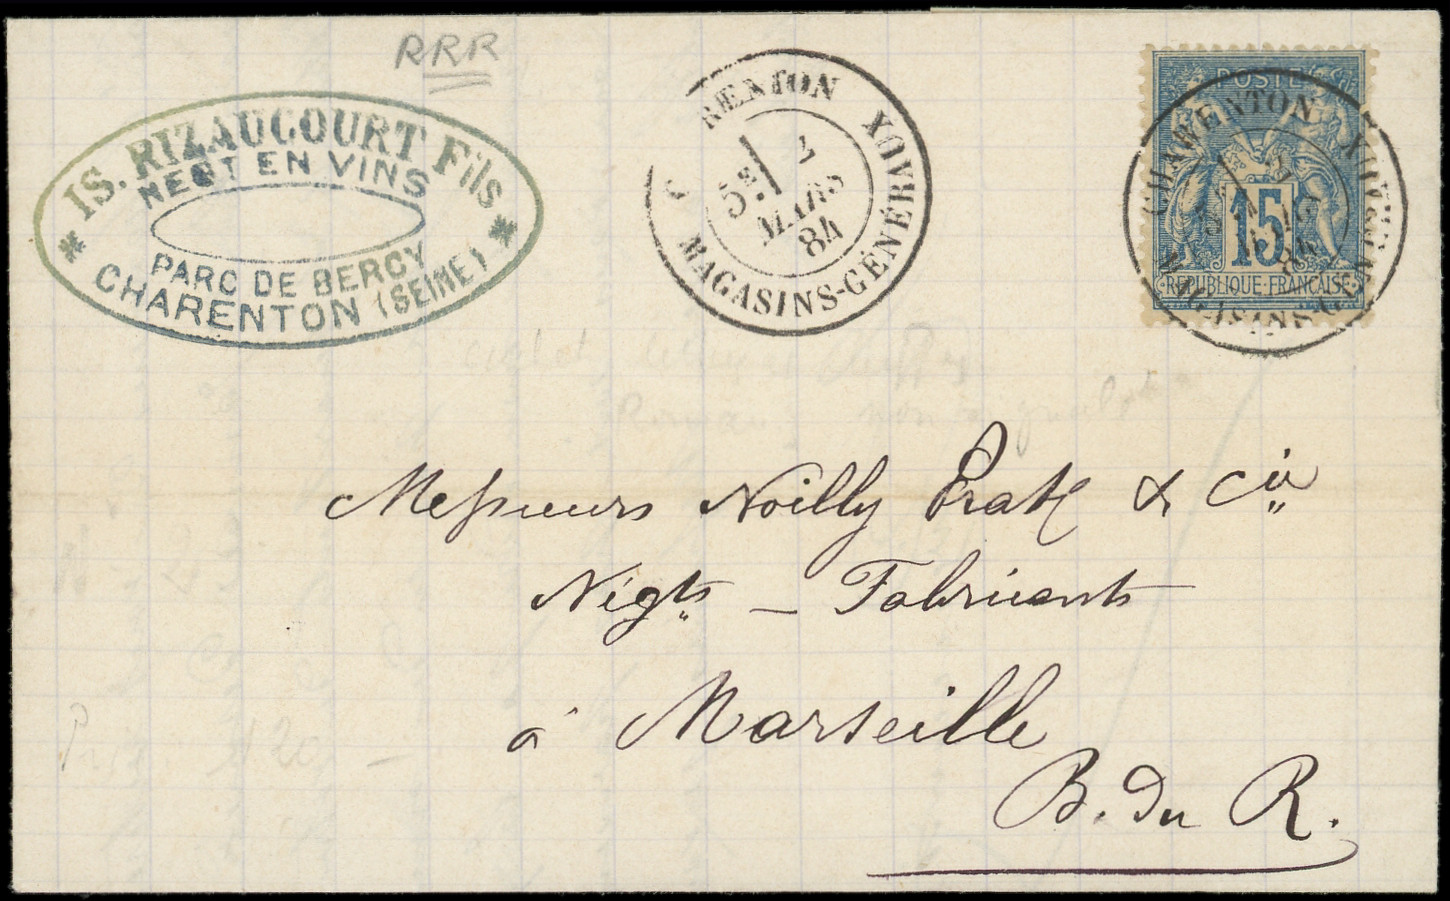 RRR
IS. RIZAUCOURT Fils
NEGT EN VINS
PARC DE BERCY
CHARENTON (SEINE)
RENTON
MAGASINS-GÉNÉRAUX
5E
MARS
84
POSTE
15
REPUBLIQUE FRANÇAISE
CHARENTON
MAGASINS-GÉNÉRAUX
84
Messieurs Noilly Prat & Cie
Négts - Fabricants
à Marseille
B. du R.